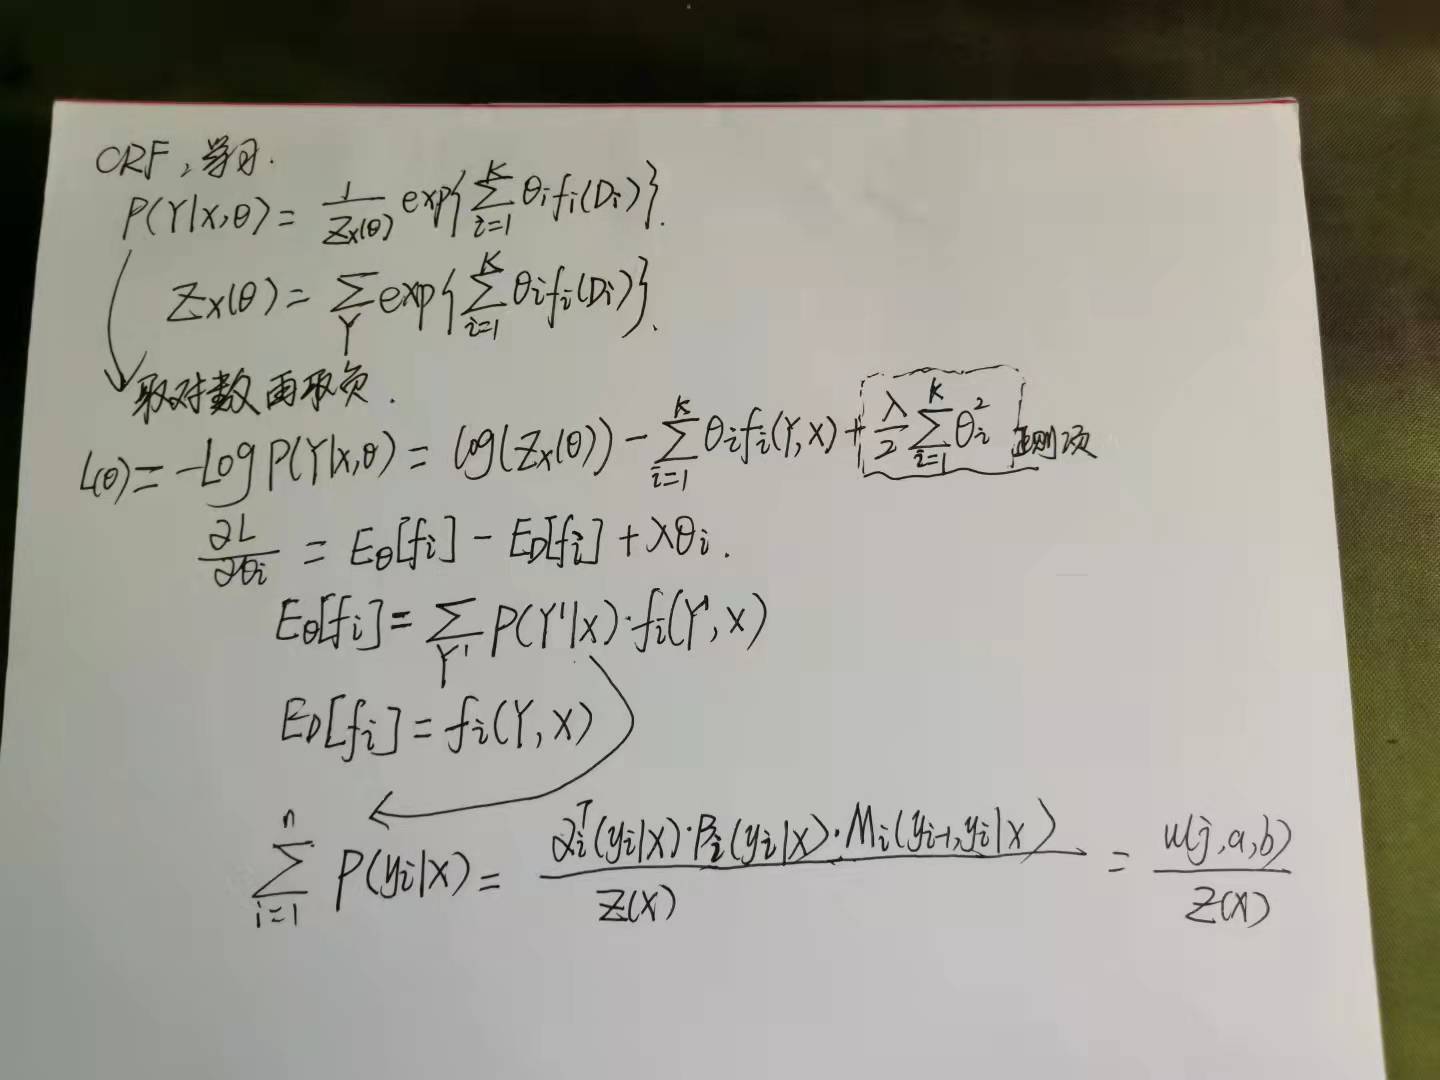 CRF,学习.
P(Y|X,θ) = 1/Z_X(θ) exp{∑_{i=1}^{K} θ_i f_i(D_i)}.
Z_X(θ) = ∑_Y exp{∑_{i=1}^{K} θ_i f_i(D_i)}.
取对数再取负.
L(θ) = -Log P(Y|X,θ) = log(Z_X(θ)) - ∑_{i=1}^{K} θ_i f_i(Y,X) + λ/2 ∑_{i=1}^{K} θ_i^2 正则项
∂L/∂θ_i = E_θ[f_i] - E_D[f_i] + λθ_i.
E_θ[f_i] = ∑_{Y'} P(Y'|X)·f_i(Y',X)
E_D[f_i] = f_i(Y,X)
∑_{i=1}^{n} P(y_i|X) = α_i^T(y_i|X)·β_i(y_i|X)·M_i(y_{i-1},y_i|X) / Z(X) = u(j,a,b) / Z(X)